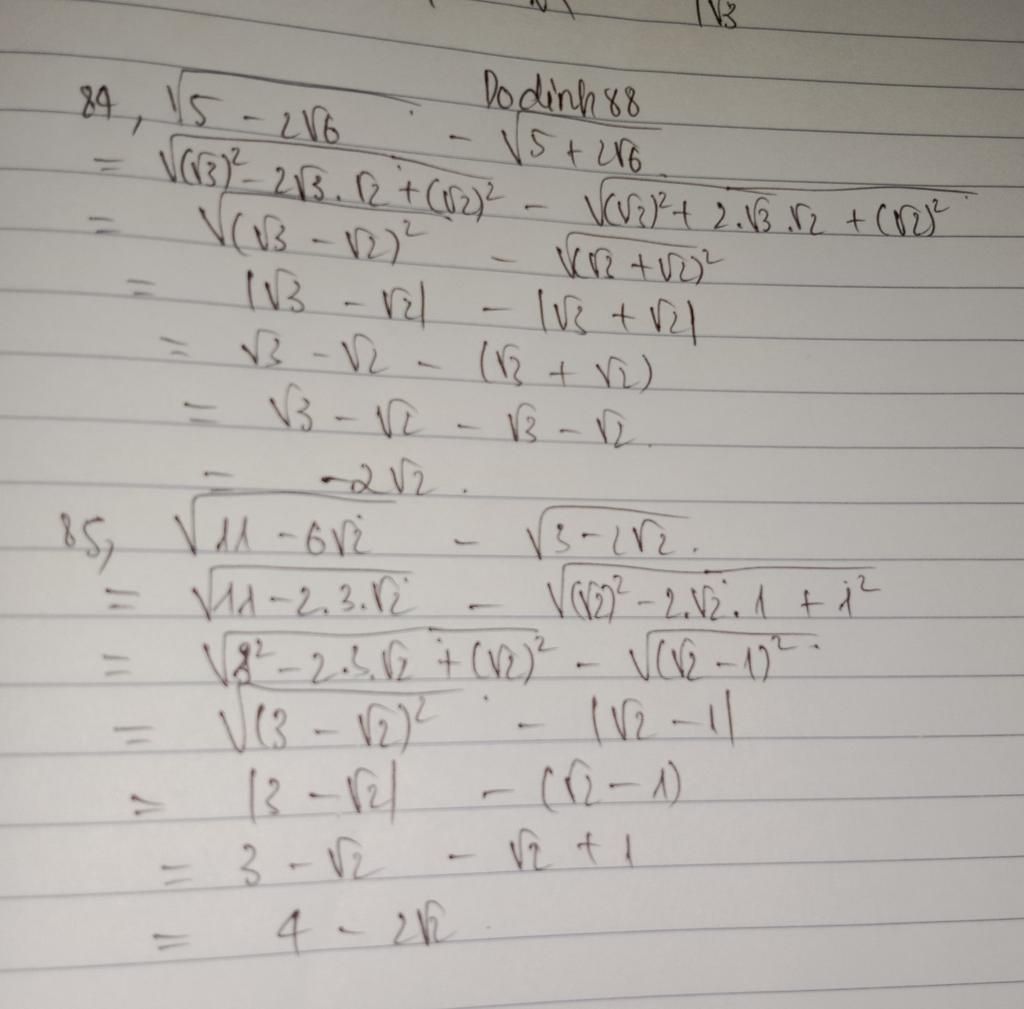 √3
Dodinh88
84, √5 - 2√6 - √5 + 2√6
= √(√3)² - 2√3.√2 + (√2)² - √(√3)² + 2.√3.√2 + (√2)²
= √(√3 - √2)² - √(√2 + √2)²
= |√3 - √2| - |√3 + √2|
= √3 - √2 - (√3 + √2)
= √3 - √2 - √3 - √2.
= -2√2.
85, √11 - 6√2 - √3 - 2√2.
= √11 - 2.3.√2 - √(√2)² - 2.√2.1 + 1²
= √3² - 2.3.√2 + (√2)² - √(√2 - 1)².
= √(3 - √2)² - |√2 - 1|
= |3 - √2| - (√2 - 1)
= 3 - √2 - √2 + 1
= 4 - 2√2.